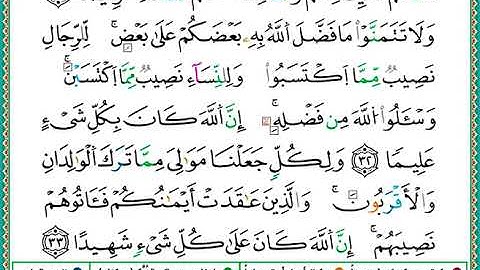 وَلَا تَتَمَنَّوْا۟ مَا فَضَّلَ ٱللَّهُ بِهِۦ بَعْضَكُمْ عَلَىٰ بَعْضٍ ۚ لِّلرِّجَالِ
نَصِيبٌ مِّمَّا ٱكْتَسَبُوا۟ ۖ وَلِلنِّسَآءِ نَصِيبٌ مِّمَّا ٱكْتَسَبْنَ ۚ
وَسْـَٔلُوا۟ ٱللَّهَ مِن فَضْلِهِۦٓ ۗ إِنَّ ٱللَّهَ كَانَ بِكُلِّ شَىْءٍ
عَلِيمًا ٣٢ وَلِكُلٍّ جَعَلْنَا مَوَٰلِىَ مِمَّا تَرَكَ ٱلْوَٰلِدَانِ
وَٱلْأَقْرَبُونَ ۚ وَٱلَّذِينَ عَٰقَدَتْ أَيْمَٰنُكُمْ فَـَٔاتُوهُمْ
نَصِيبَهُمْ ۚ إِنَّ ٱللَّهَ كَانَ عَلَىٰ كُلِّ شَىْءٍ شَهِيدًا ٣٣